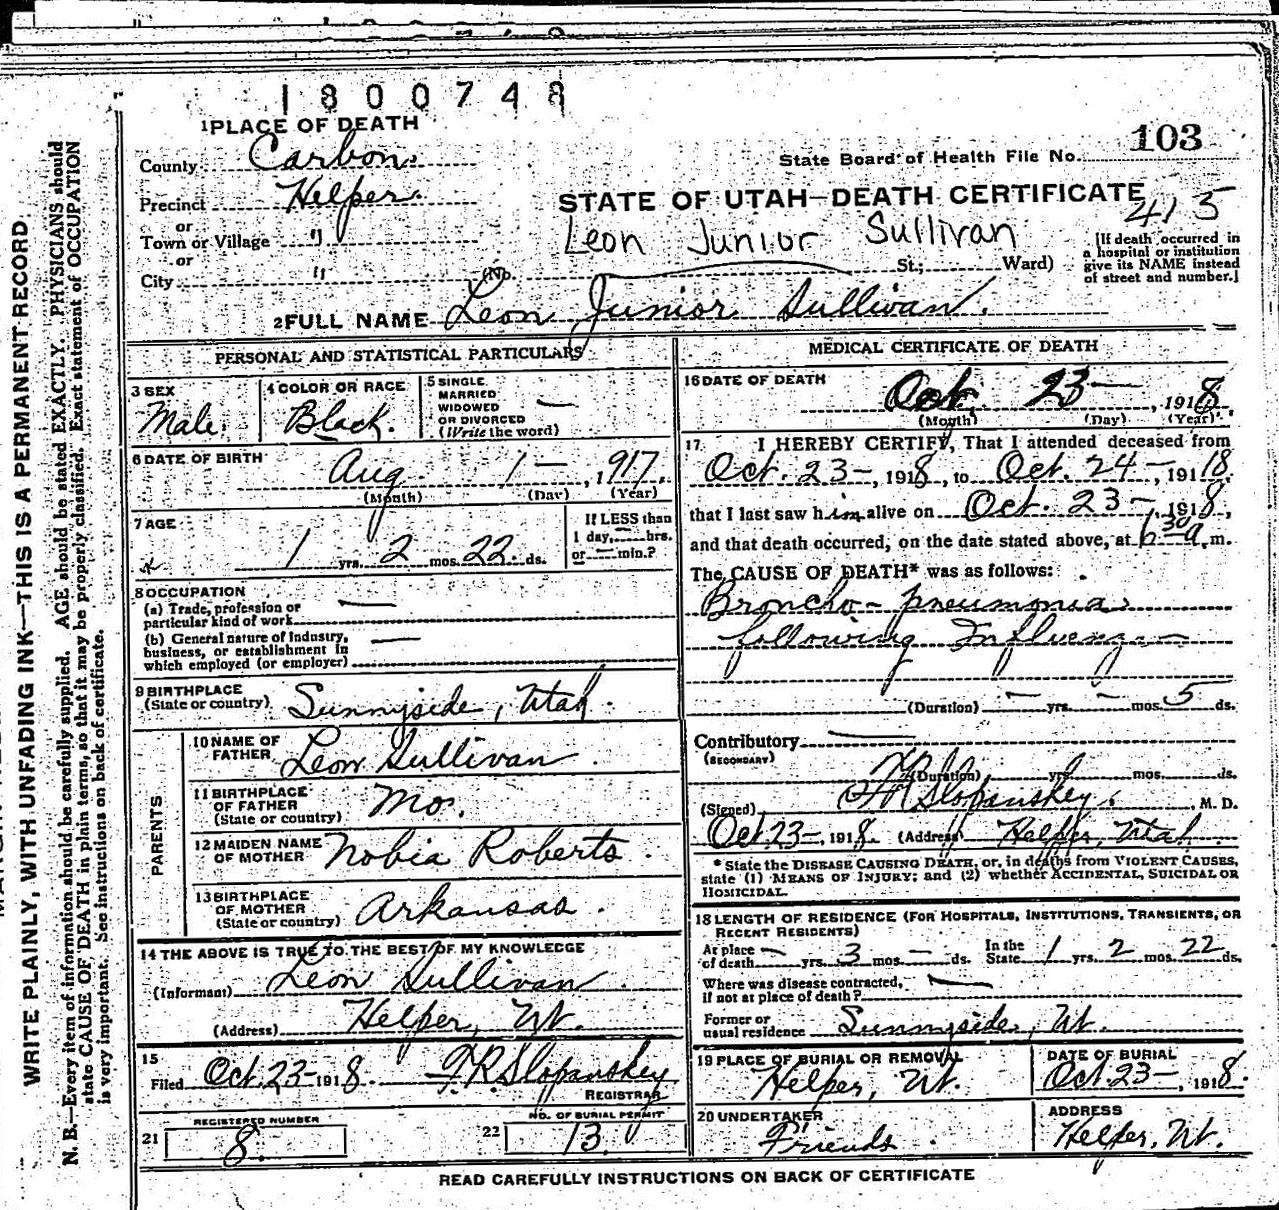 1800748
1 PLACE OF DEATH
103
County Carbon.
State Board of Health File No.
Precinct Helper.
STATE OF UTAH—DEATH CERTIFICATE
413
or
Town or Village "
Leon Junior Sullivan
or
City "
(No. St.; Ward)
[If death occurred in
a hospital or institution
give its NAME instead
of street and number.]
2 FULL NAME Leon Junior Sullivan.
PERSONAL AND STATISTICAL PARTICULARS
3 SEX
Male.
4 COLOR OR RACE
Black.
5 SINGLE
MARRIED
WIDOWED
OR DIVORCED
(Write the word) —
6 DATE OF BIRTH
Aug 1 — , 1917.
(Month) (Day) (Year)
7 AGE
1 yrs. 2 mos. 22 ds.
If LESS than
1 day, — hrs.
or — min.?
8 OCCUPATION
(a) Trade, profession or
particular kind of work —
(b) General nature of Industry,
business, or establishment in
which employed (or employer) —
9 BIRTHPLACE
(State or country) Sunnyside, Utah.
PARENTS
10 NAME OF
FATHER Leon Sullivan.
11 BIRTHPLACE
OF FATHER
(State or country) Mo.
12 MAIDEN NAME
OF MOTHER Nobia Roberts.
13 BIRTHPLACE
OF MOTHER
(State or country) Arkansas.
14 THE ABOVE IS TRUE TO THE BEST OF MY KNOWLEDGE
(Informant) Leon Sullivan
(Address) Helper, Ut.
15
Filed Oct. 23 — 1918. F. R. Slopanskey
REGISTRAR
21 REGISTERED NUMBER
8.
22 NO. OF BURIAL PERMIT
13
MEDICAL CERTIFICATE OF DEATH
16 DATE OF DEATH
Oct. 23 — , 1918
(Month) (Day) (Year)
17 I HEREBY CERTIFY, That I attended deceased from
Oct. 23 — , 1918, to Oct. 24 — , 1918.
that I last saw him alive on Oct. 23 — , 1918,
and that death occurred, on the date stated above, at 6 30 a. m.
The CAUSE OF DEATH* was as follows:
Broncho-pneumonia
following Influenza —
(Duration) — yrs. — mos. 5 ds.
Contributory —
(SECONDARY)
(Duration) yrs. mos. ds.
(Signed) F R Slopanskey. , M. D.
Oct. 23 — , 1918. (Address) Helper, Utah
* State the DISEASE CAUSING DEATH, or, in deaths from VIOLENT CAUSES,
state (1) MEANS OF INJURY; and (2) whether ACCIDENTAL, SUICIDAL OR
HOMICIDAL.
18 LENGTH OF RESIDENCE (FOR HOSPITALS, INSTITUTIONS, TRANSIENTS, OR
RECENT RESIDENTS)
At place
of death — yrs. 3 mos. — ds. In the
State 1 yrs. 2 mos. 22 ds.
Where was disease contracted,
if not at place of death? —
Former or
usual residence Sunnyside, Ut.
19 PLACE OF BURIAL OR REMOVAL
Helper, Ut.
DATE OF BURIAL
Oct. 23 — , 1918.
20 UNDERTAKER
Friends.
ADDRESS
Helper, Ut.
READ CAREFULLY INSTRUCTIONS ON BACK OF CERTIFICATE
WRITE PLAINLY, WITH UNFADING INK—THIS IS A PERMANENT RECORD
N. B.—Every item of information should be carefully supplied. AGE should be stated EXACTLY. PHYSICIANS should
state CAUSE OF DEATH in plain terms, so that it may be properly classified. Exact statement of OCCUPATION
is very important. See instructions on back of certificate.